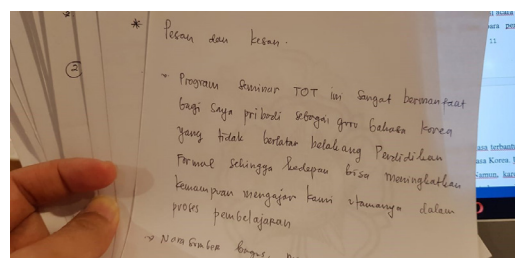 * Pesan dan kesan.
②
→ Program Seminar TOT ini sangat bermanfaat
bagi saya pribadi sebagai guru bahasa Korea
yang tidak berlatar belakang Pendidikan
Formal sehingga kedepan bisa meningkatkan
kemampuan mengajar kami utamanya dalam
proses pembelajaran
→ Narasumber bagus,
acara
11
asa Korea.
Namun,